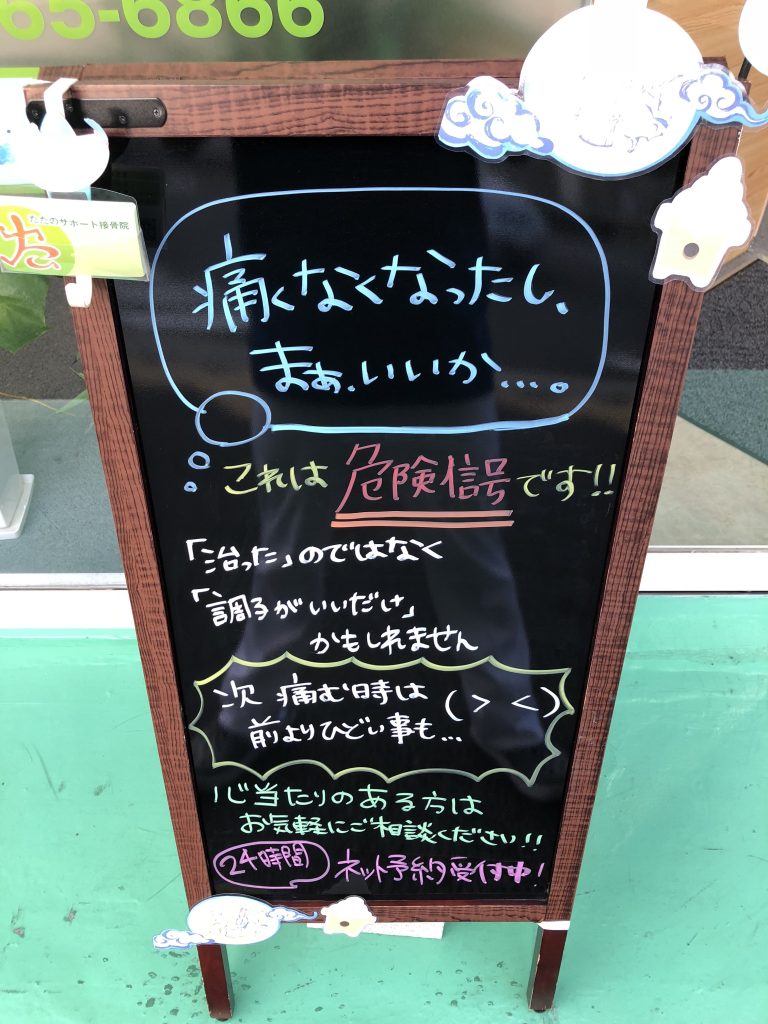 65-6866
たたのサポート接骨院
痛くなくなったし、
まぁ、いいか…。
これは危険信号です!!
「治った」のではなく
「調子がいいだけ」
かもしれません
次 痛む時は
前よりひどい事も…
(><)
心当たりのある方は
お気軽にご相談ください!!
24時間 ネット予約受付中!